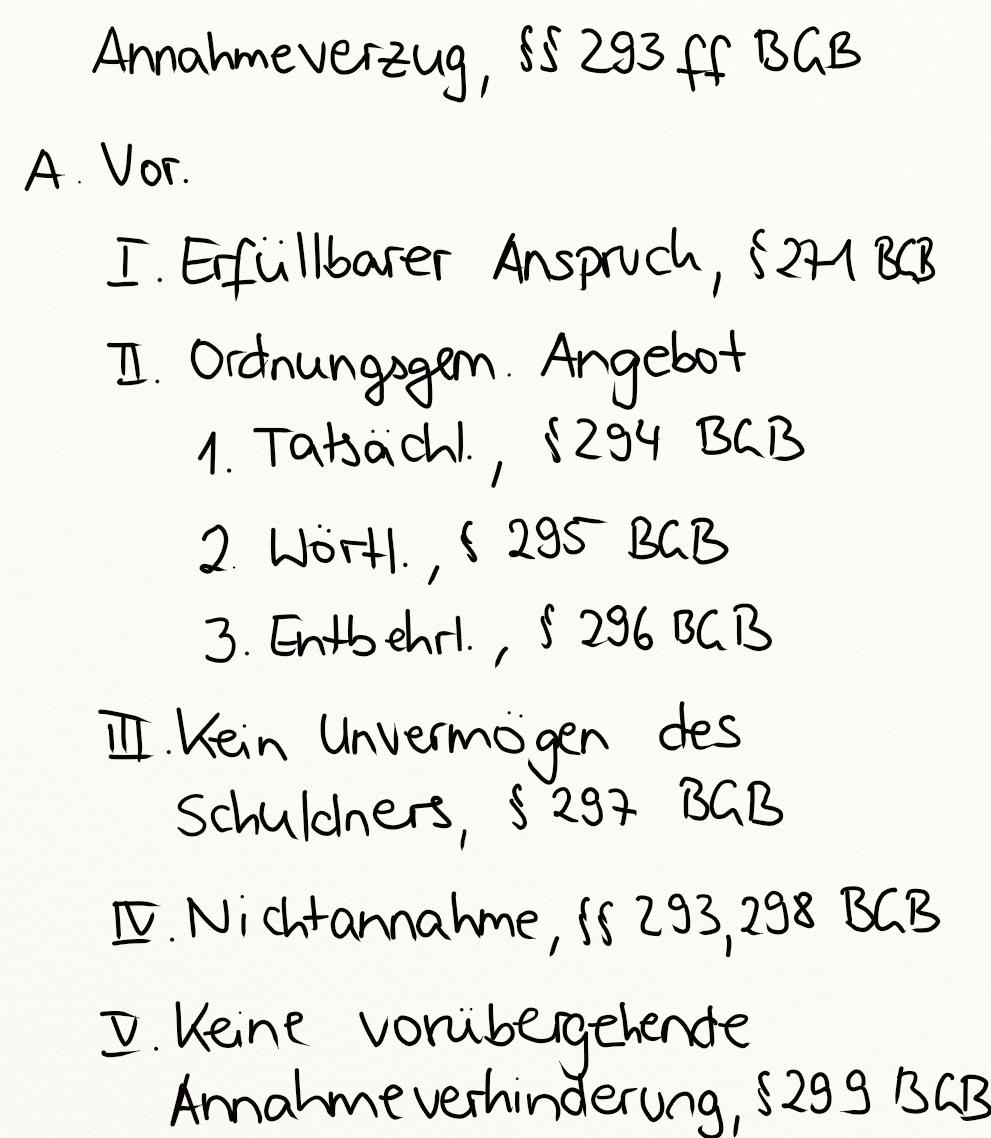 Annahmeverzug, §§ 293 ff BGB
A. Vor.
I. Erfüllbarer Anspruch, § 271 BGB
II. Ordnungsgem. Angebot
1. Tatsächl., § 294 BGB
2. Wörtl., § 295 BGB
3. Entbehrl., § 296 BGB
III. Kein Unvermögen des
Schuldners, § 297 BGB
IV. Nichtannahme, §§ 293, 298 BGB
V. Keine vorübergehende
Annahmeverhinderung, § 299 BGB